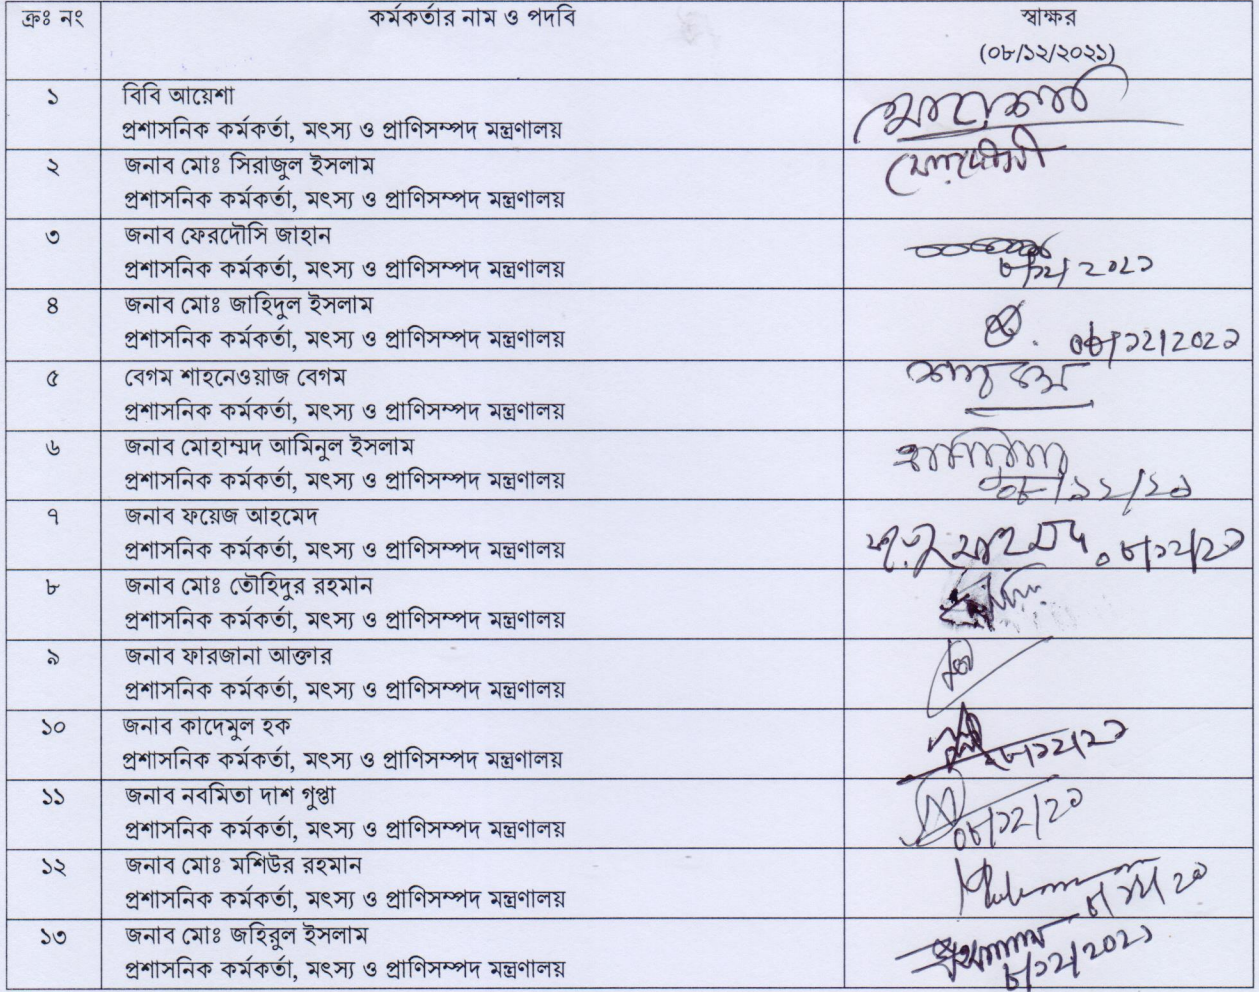 ক্রঃ নং কর্মকর্তার নাম ও পদবি স্বাক্ষর
(০৮/১২/২০২১)
১ বিবি আয়েশা
প্রশাসনিক কর্মকর্তা, মৎস্য ও প্রাণিসম্পদ মন্ত্রণালয়
২ জনাব মোঃ সিরাজুল ইসলাম
প্রশাসনিক কর্মকর্তা, মৎস্য ও প্রাণিসম্পদ মন্ত্রণালয়
৩ জনাব ফেরদৌসি জাহান
প্রশাসনিক কর্মকর্তা, মৎস্য ও প্রাণিসম্পদ মন্ত্রণালয়
৮/১২/২০২১
৪ জনাব মোঃ জাহিদুল ইসলাম
প্রশাসনিক কর্মকর্তা, মৎস্য ও প্রাণিসম্পদ মন্ত্রণালয় ০৮/১২/২০২১
৫ বেগম শাহনেওয়াজ বেগম
প্রশাসনিক কর্মকর্তা, মৎস্য ও প্রাণিসম্পদ মন্ত্রণালয়
৬ জনাব মোহাম্মদ আমিনুল ইসলাম
প্রশাসনিক কর্মকর্তা, মৎস্য ও প্রাণিসম্পদ মন্ত্রণালয় ০৮/১২/২১
৭ জনাব ফয়েজ আহমেদ
প্রশাসনিক কর্মকর্তা, মৎস্য ও প্রাণিসম্পদ মন্ত্রণালয় ০৮/১২/২১
৮ জনাব মোঃ তৌহিদুর রহমান
প্রশাসনিক কর্মকর্তা, মৎস্য ও প্রাণিসম্পদ মন্ত্রণালয়
৯ জনাব ফারজানা আক্তার
প্রশাসনিক কর্মকর্তা, মৎস্য ও প্রাণিসম্পদ মন্ত্রণালয়
১০ জনাব কাদেমুল হক
প্রশাসনিক কর্মকর্তা, মৎস্য ও প্রাণিসম্পদ মন্ত্রণালয় ০৮/১২/২১
১১ জনাব নবমিতা দাশ গুপ্তা
প্রশাসনিক কর্মকর্তা, মৎস্য ও প্রাণিসম্পদ মন্ত্রণালয় ০৮/১২/২১
১২ জনাব মোঃ মশিউর রহমান
প্রশাসনিক কর্মকর্তা, মৎস্য ও প্রাণিসম্পদ মন্ত্রণালয় ৮/১২/২১
১৩ জনাব মোঃ জহিরুল ইসলাম
প্রশাসনিক কর্মকর্তা, মৎস্য ও প্রাণিসম্পদ মন্ত্রণালয় ৮/১২/২০২১